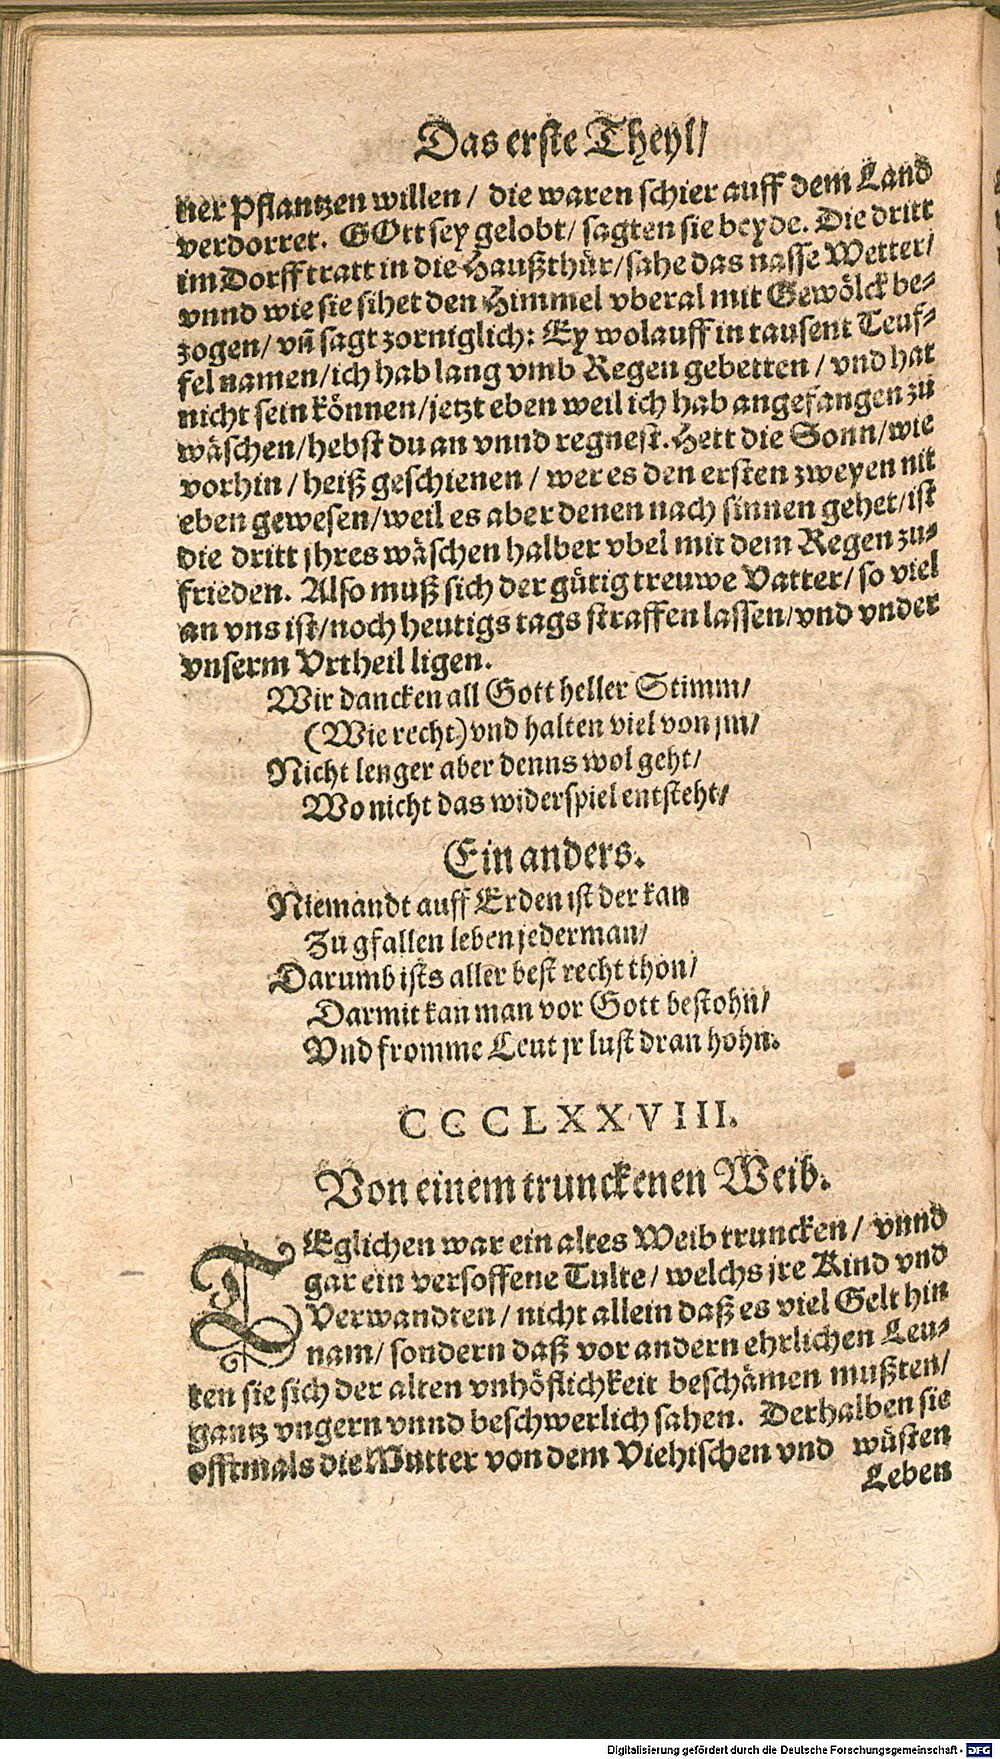 Das erste Theyl/
ner Pflantzen willen / die waren schier auff dem Land
verdorret. GOtt sey gelobt/ sagten sie beyde. Die dritt
im Dorff tratt in die Haußthür/ sahe das nasse Wetter/
vnnd wie sie sihet den Himmel vberal mit Gewölck be-
zogen/ vñ sagt zorniglich: Ey wolauff in tausent Teuf-
fel namen/ ich hab lang vmb Regen gebetten / vnd hat
nicht sein können/ jetzt eben weil ich hab angefangen zů
wäschen/ hebst du an vnnd regnest. Hett die Sonn/ wie
vorhin / heiß geschienen / wer es den ersten zweyen nit
eben gewesen/ weil es aber denen nach sinnen gehet/ ist
die dritt jhres wäschen halber vbel mit dem Regen zu-
frieden. Also muß sich der gütig treuwe Vatter/ so viel
an vns ist/ noch heutigs tags straffen lassen/ vnd vnder
vnserm Vrtheil ligen.
Wir dancken all Gott heller Stimm/
(Wie recht) vnd halten viel von jm/
Nicht lenger aber denns wol geht/
Wo nicht das widerspiel entsteht/
Ein anders.
Niemandt auff Erden ist der kan
Zu gfallen leben jederman/
Darumb ists aller best recht thon/
Darmit kan man vor Gott bestohn/
Vnd fromme Leut jr lust dran hohn.
CCCLXXVIII.
Von einem trunckenen Weib.
TEglichen war ein altes Weib truncken / vnnd
gar ein versoffene Tulte / welchs jre Kind vnd
Verwandten / nicht allein daß es viel Gelt hin
nam/ sondern daß vor andern ehrlichen Leu-
ten sie sich der alten vnhöflichkeit beschämen mußten/
gantz vngern vnnd beschwerlich sahen. Derhalben sie
offtmals die Mutter von dem Viehischen vnd wüsten
Leben
Digitalisierung gefördert durch die Deutsche Forschungsgemeinschaft - DFG